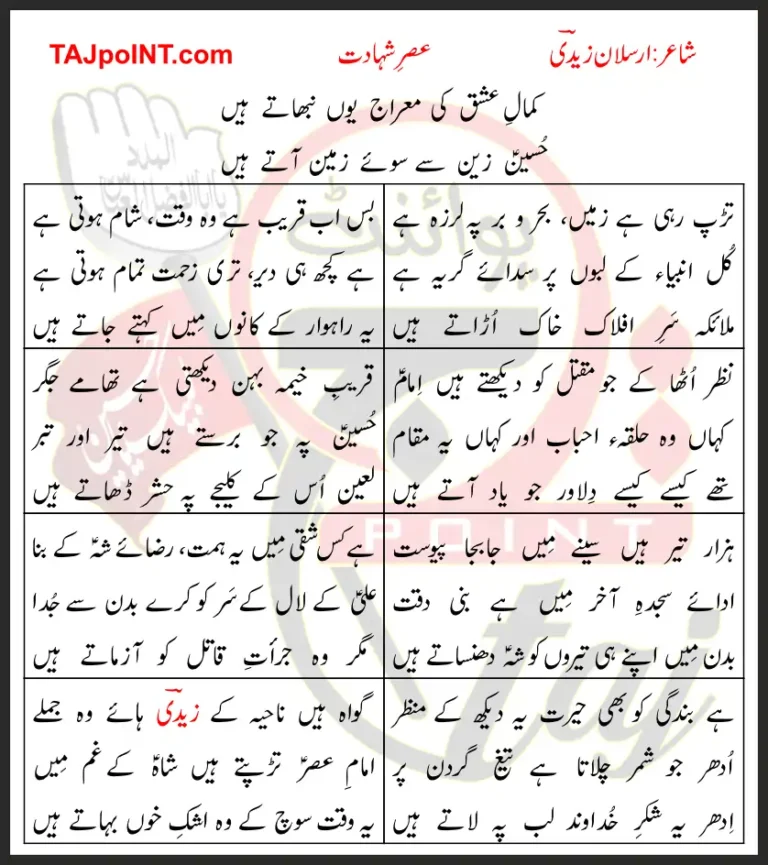 شاعر: ارسلان زیدیؔ عصرِ شہادت TAJpoINT.com
کمالِ عشق کی معراج یوں نبھاتے ہیں
حُسینؑ زین سے سوئے زمین آتے ہیں
تڑپ رہی ہے زمیں، بحر و بر پہ لرزہ ہے
کُل انبیاء کے لبوں پر سدائے گریہ ہے
ملائکہ سَرِ افلاک خاک اُڑاتے ہیں
بس اب قریب ہے وہ وقت، شام ہوتی ہے
ہے کچھ ہی دیر، تری زحمت تمام ہوتی ہے
یہ راہوار کے کانوں مِیں کہتے جاتے ہیں
نظر اُٹھا کے جو مقتل کو دیکھتے ہیں اِمامؑ
کہاں وہ حلقہء احباب اور کہاں یہ مقام
تھے کیسے کیسے دِلاور جو یاد آتے ہیں
قریبِ خیمہ بہن دیکھتی ہے تھامے جگر
حُسینؑ پہ جو برستے ہیں تیر اور تبر
لعین اُس کے کلیجے پہ حشر ڈھاتے ہیں
ہزار تیر ہیں سینے مِیں جابجا پیوست
ادائے سجدہِ آخر مِیں ہے بنی دقت
بدن مِیں اپنے ہی تیروں کو شہؑ دھنساتے ہیں
ہے کس شقی مِیں یہ ہمت، رضائے شہؑ کے بنا
علیؑ کے لال کے سَر کو کرے بدن سے جُدا
مگر وہ جرأتِ قاتل کو آزماتے ہیں
ہے بندگی کو بھی حیرت یہ دیکھ کے منظر
اُدھر جو شمر چلاتا ہے تیغ گردن پر
اِدھر یہ شکرِ خُداوند لب پہ لاتے ہیں
گواہ ہیں ناحیہ کے زیدیؔ ہائے وہ جملے
امامِ عصرؑ تڑپتے ہیں شاہؑ کے غم مِیں
یہ وقت سوچ کے وہ اشکِ خوں بہاتے ہیں
پوائنٹ
POINT
taj